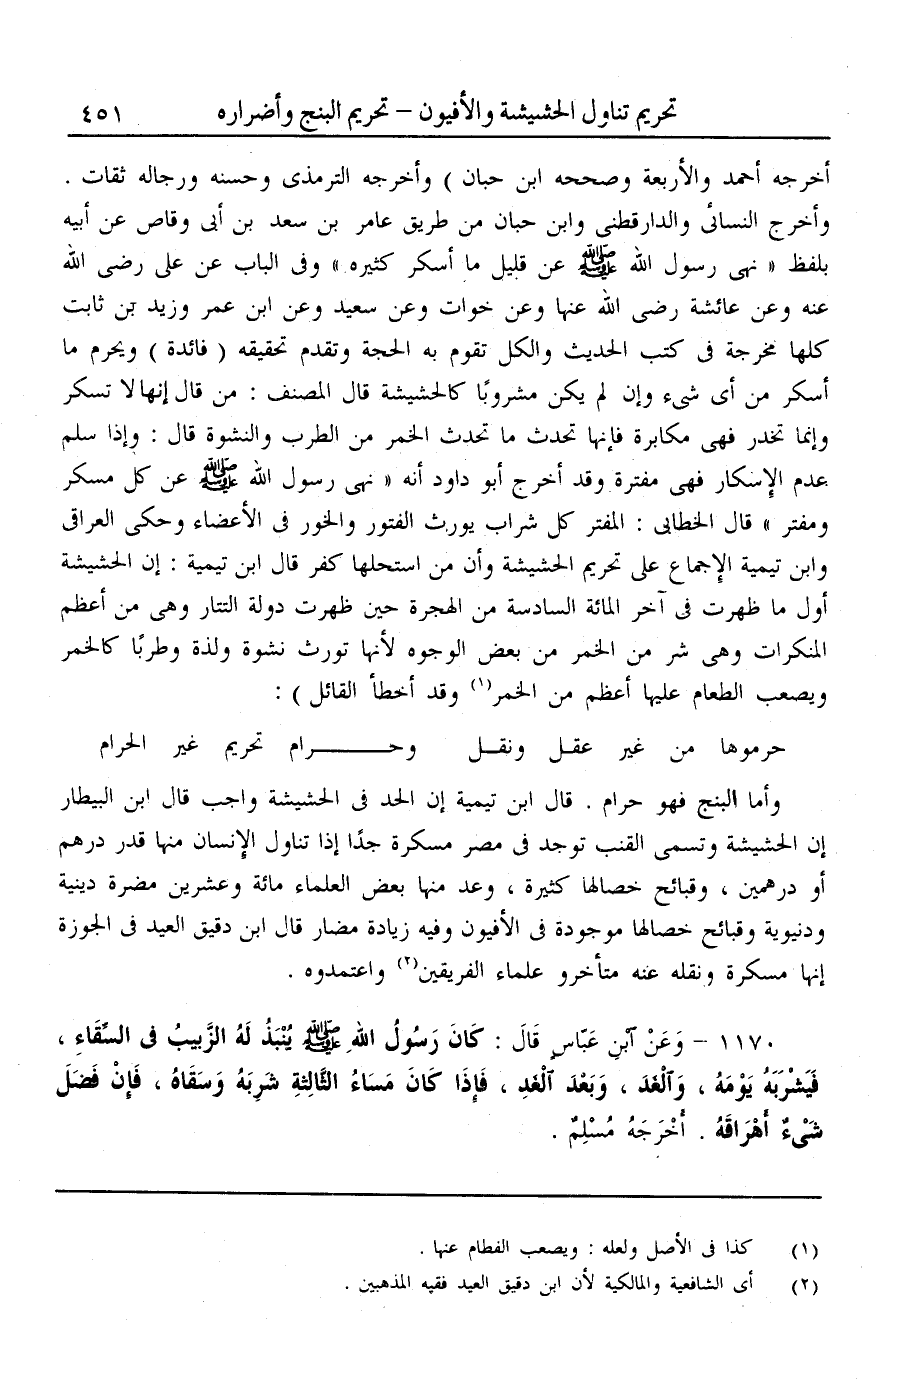 تحريم تناول الحشيشة والأفيون – تحريم البنج وأضراره ٤٥١
أخرجه أحمد والأربعة وصححه ابن حبان ) وأخرجه الترمذى وحسنه ورجاله ثقات .
وأخرج النسائى والدارقطنى وابن حبان من طريق عامر بن سعد بن أبى وقاص عن أبيه
بلفظ « نهى رسول الله ﷺ عن قليل ما أسكر كثيره » وفى الباب عن على رضى الله
عنه وعن عائشة رضى الله عنها وعن خوات وعن سعيد وعن ابن عمر وزيد بن ثابت
كلها مخرجة فى كتب الحديث والكل تقوم به الحجة وتقدم تحقيقه ( فائدة ) ويحرم ما
أسكر من أى شىء وإن لم يكن مشروبًا كالحشيشة قال المصنف : من قال إنها لا تسكر
وإنما تخدر فهى مكابرة فإنها تحدث ما تحدث الخمر من الطرب والنشوة قال : وإذا سلم
عدم الإسكار فهى مفترة وقد أخرج أبو داود أنه « نهى رسول الله ﷺ عن كل مسكر
ومفتر » قال الخطابى : المفتر كل شراب يورث الفتور والخور فى الأعضاء وحكى العراقى
وابن تيمية الإجماع على تحريم الحشيشة وأن من استحلها كفر قال ابن تيمية : إن الحشيشة
أول ما ظهرت فى آخر المائة السادسة من الهجرة حين ظهرت دولة التتار وهى من أعظم
المنكرات وهى شر من الخمر من بعض الوجوه لأنها تورث نشوة ولذة وطربًا كالخمر
ويصعب الطعام عليها أعظم من الخمر(١) وقد أخطأ القائل ) :
حرموها من غير عقل ونقل وحـــــرام تحريم غير الحرام
وأما البنج فهو حرام . قال ابن تيمية إن الحد فى الحشيشة واجب قال ابن البيطار
إن الحشيشة وتسمى القنب توجد فى مصر مسكرة جدًا إذا تناول الإنسان منها قدر درهم
أو درهمين ، وقبائح خصالها كثيرة ، وعد منها بعض العلماء مائة وعشرين مضرة دينية
ودنيوية وقبائح خصالها موجودة فى الأفيون وفيه زيادة مضار قال ابن دقيق العيد فى الجوزة
إنها مسكرة ونقله عنه متأخرو علماء الفريقين(٢) واعتمدوه .
١١٧٠ – وَعَنْ ٱبْنِ عَبَّاسٍ قَالَ : كَانَ رَسُولُ اللهِ ﷺ يُنْبَذُ لَهُ الزَّبِيبُ فى السِّقَاءِ ،
فَيَشْرَبَهُ يَوْمَهُ ، وَٱلْغَدَ ، وَبَعْدَ ٱلْغَدِ ، فَإِذَا كَانَ مَسَاءُ الثَّالِثَةِ شَرِبَهُ وَسَقَاهُ ، فَإِنْ فَضَلَ
شَىْءٌ أَهْرَاقَهُ . أَخْرَجَهُ مُسْلِمٌ .
(١) كذا فى الأصل ولعله : ويصعب الفطام عنها .
(٢) أى الشافعية والمالكية لأن ابن دقيق العيد فقيه المذهبين .